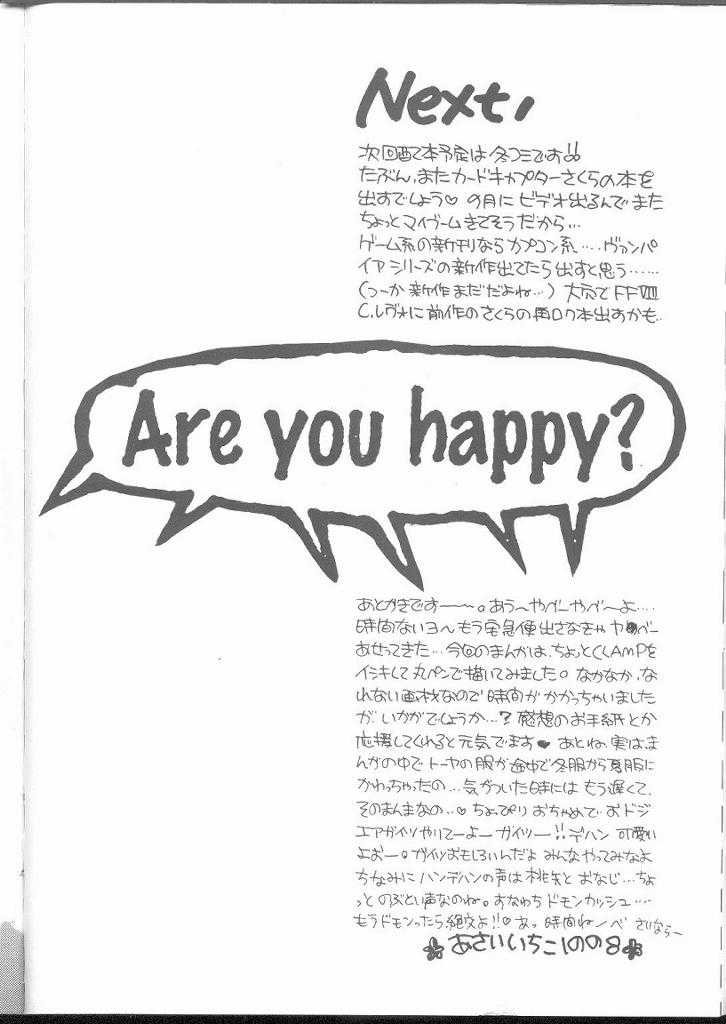 Next,
次回配本予定は冬コミです!!
たぶん、またカードキャプターさくらの本を
出すでしょう♡ の月にビデオ出るんでまた
ちょっとマイブームきてそうだから…
ゲーム系の新刊ならカプコン系……ヴァンパ
イアシリーズの新作出てたら出すと思う……
(つーか新作まだだよね…) 大穴でFFVIII
C.レヴォに前作のさくらの再ロク本出すかも。
Are you happy?
あとがきです〜〜。あう〜やべーやべーよ…
時間ないヨ〜もう宅急便出さなきゃヤベー
あせってきた…今回のまんがは、ちょっとCLAMPを
イシキして丸ペンで描いてみました。なかなか、な
れない画材なので時間がかかっちゃいました
が、いかがでしょうか…?感想のお手紙とか
応援してくれると元気でます♥ あとね、実は、ま
んがの中でトーヤの服が途中で冬服から夏服に
かわっちゃったの…気がついた時にはもう遅くて、
そのまんまなの…♡ ちょっぴりおちゃめでおドジ
エアガイツやりてーよーガイツー!!デハン 可愛い
よおー。ガイツおもしろいんだよ みんなやってみなよ
ちなみにハンデハンの声は桃矢とおなじ…ちょ
っとのぶとい声なのね。すなわちドモンカッシュ…
もうドモンったら、絶交よ!!♡ あっ 時間ねーべ さいならー
あさいいちこ1998